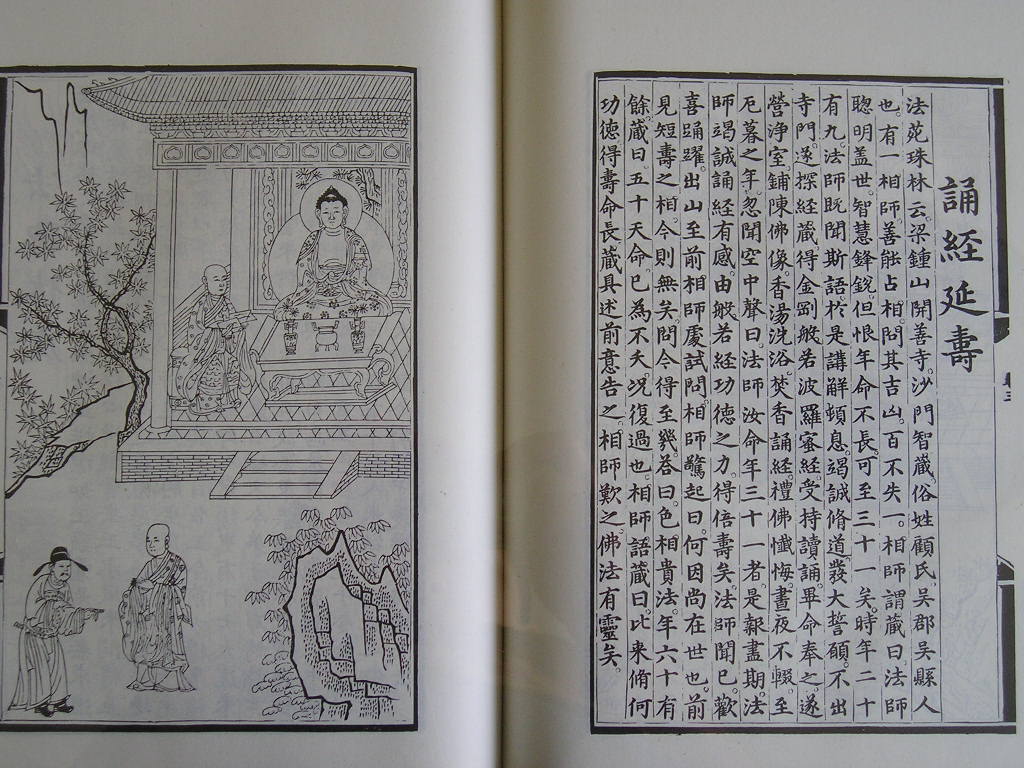 誦經延壽
法苑珠林云。梁鍾山開善寺。沙門智蔵。俗姓顧氏。吳郡吳縣人
也。有一相師。善能占相。問其吉凶。百不失一。相師謂蔵曰。法師
聰明盖世。智慧鋒銳。但恨年命不長。可至三十一矣。時年二十
有九。法師既聞斯語。於是講解頓息。竭誠脩道。發大誓願。不出
寺門。遂探經蔵。得金剛般若波羅蜜經。受持讀誦。畢命奉之。遂
營淨室。鋪陳佛像。香湯洗浴。焚香誦經。禮佛懺悔。晝夜不輟。至
厄暮之年。忽聞空中聲曰。法師汝命年三十一者。是報盡期。法
師竭誠誦經有感。由般若經功德之力。得倍壽矣。法師聞已。歡
喜踊躍。出山至前相師處試問。相師驚起曰。何因尚在世也。前
見短壽之相。今則無矣。問今得至幾。荅曰。色相貴法。年六十有
餘。蔵曰。五十天命。已為不夭。况復過也。相師語蔵曰。比来脩何
功德。得壽命長。蔵具述前意告之。相師歎之。佛法有靈矣。